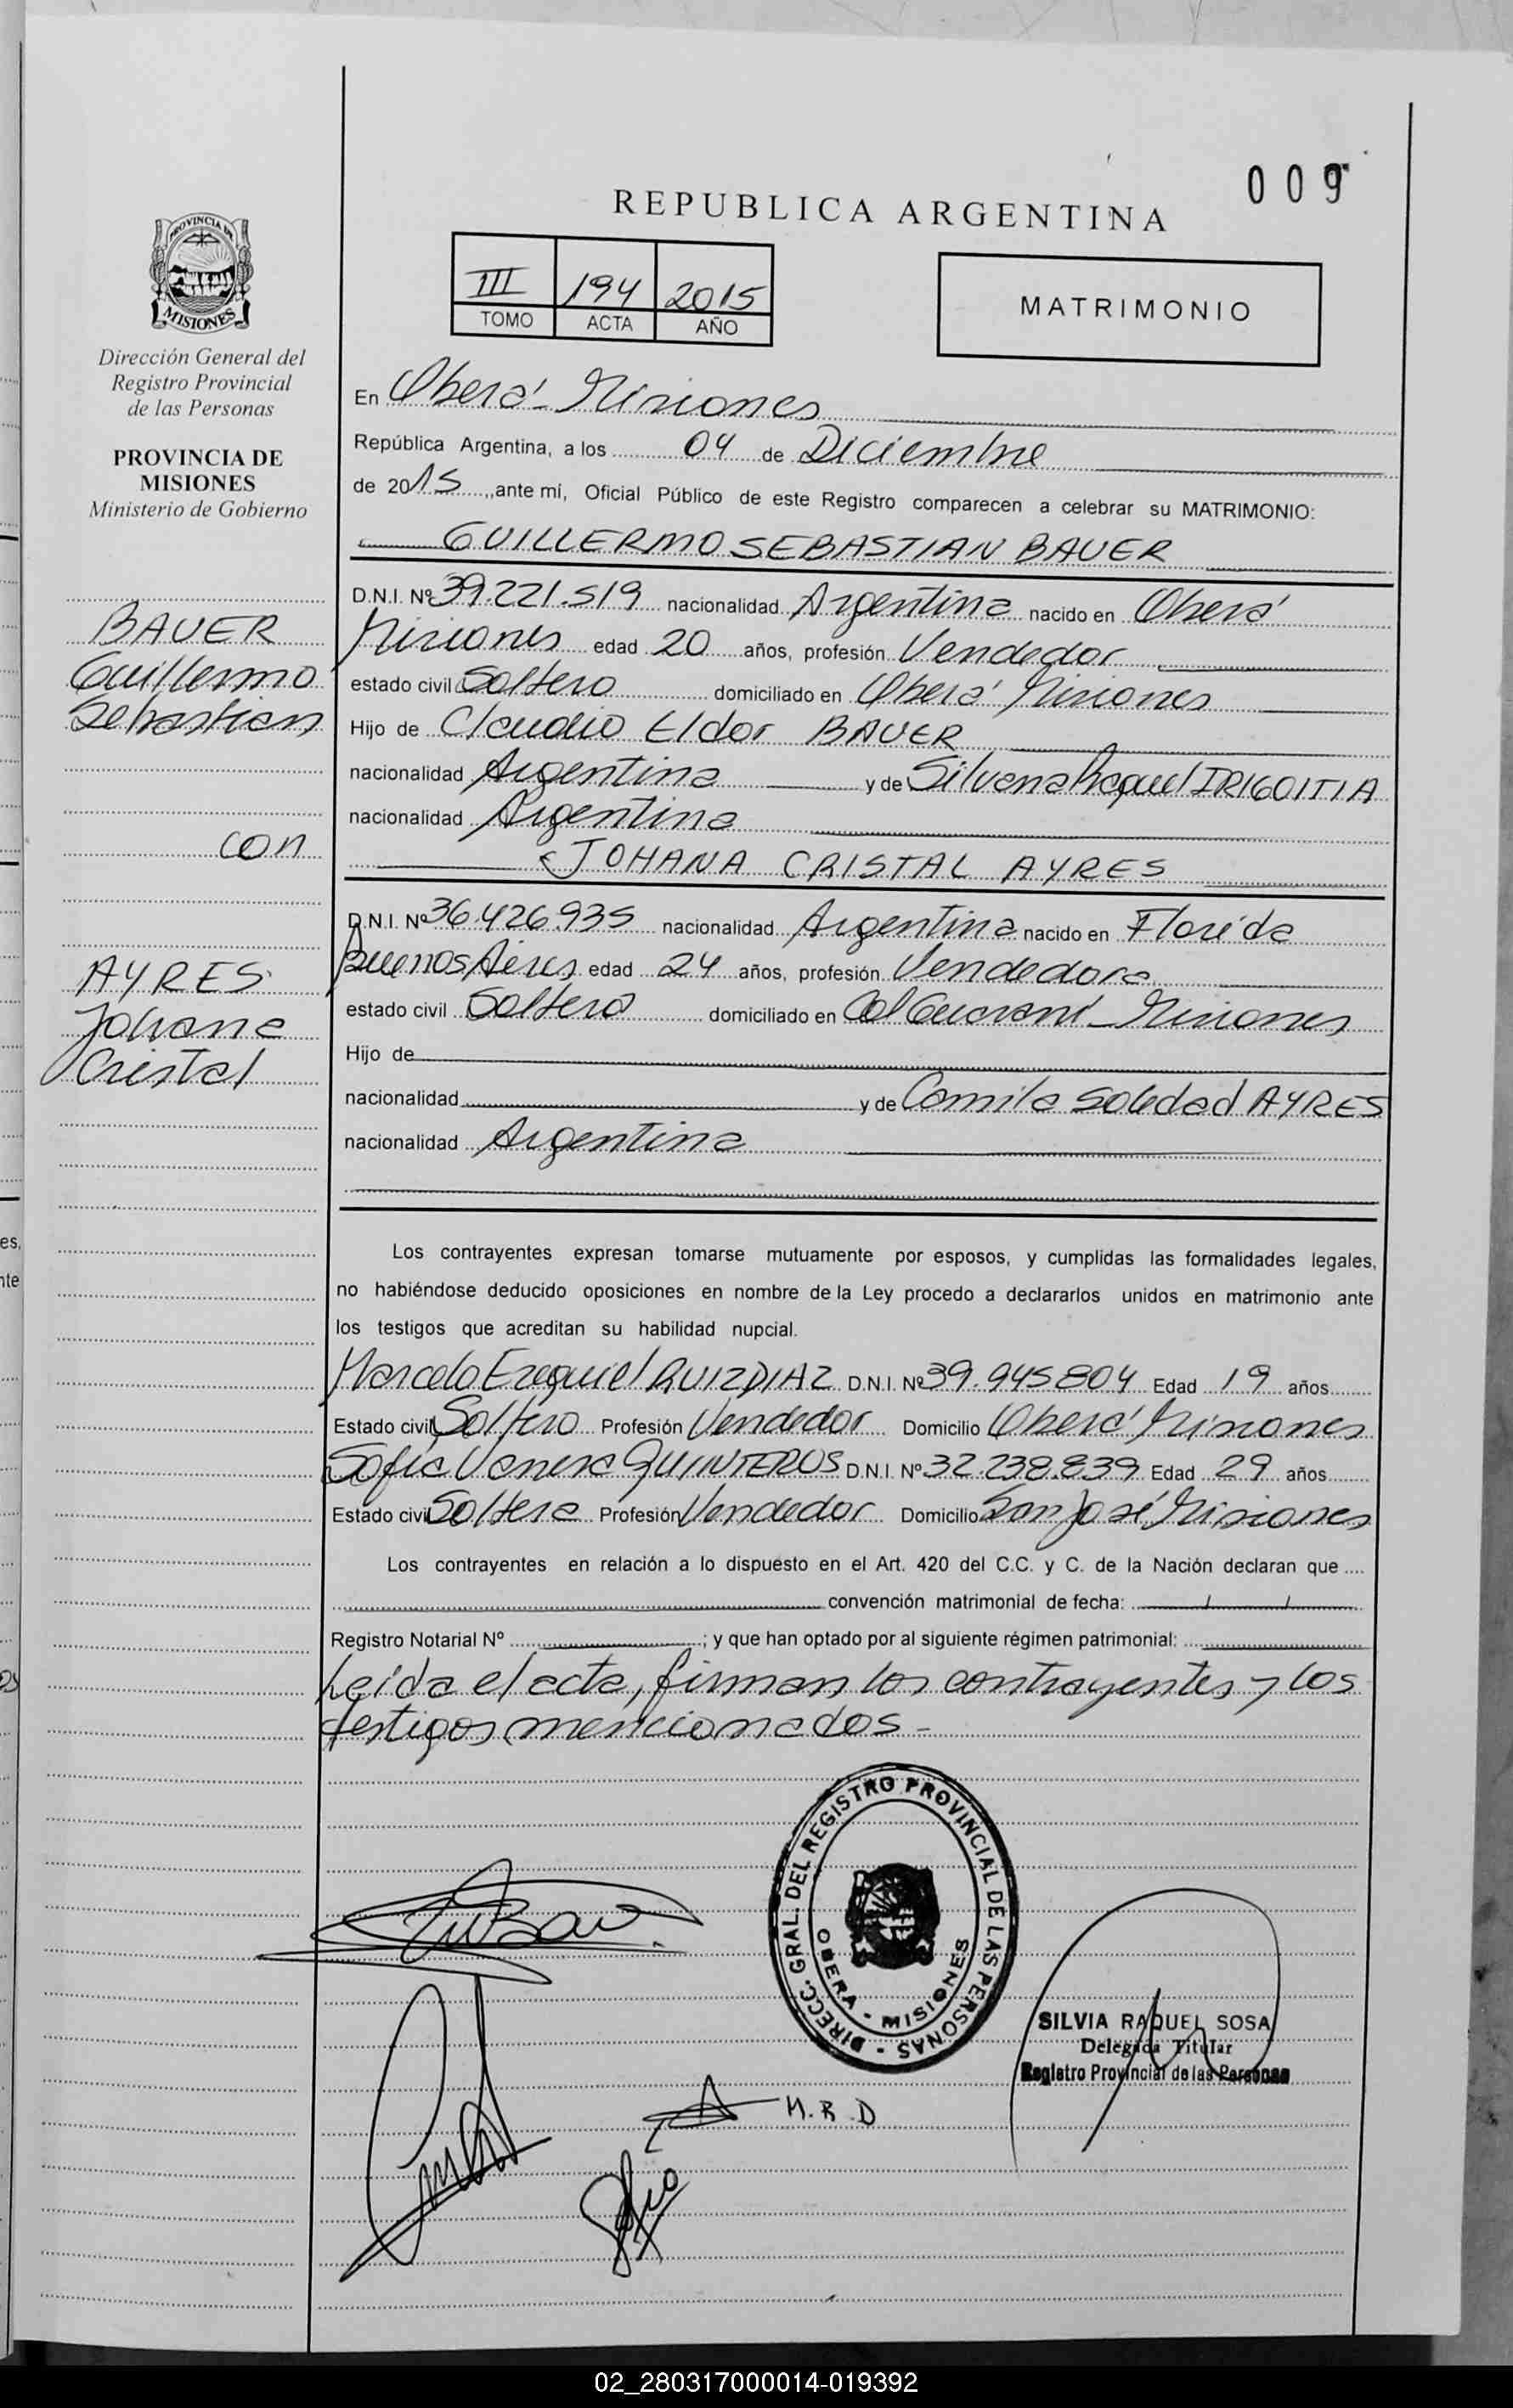 009
REPUBLICA ARGENTINA
III 194 2015
TOMO ACTA AÑO
MATRIMONIO
PROVINCIA DE
MISIONES
Dirección General del
Registro Provincial
de las Personas
PROVINCIA DE
MISIONES
Ministerio de Gobierno
BAUER
Guillermo
Sebastian
con
AYRES
Johana
Cristal
En Oberá - Misiones
República Argentina, a los 04 de Diciembre
de 2015, ante mí, Oficial Público de este Registro comparecen a celebrar su MATRIMONIO:
GUILLERMO SEBASTIAN BAUER
D.N.I. Nº 39.221.519 nacionalidad Argentina nacido en Oberá
Misiones edad 20 años, profesión Vendedor
estado civil Soltero domiciliado en Oberá Misiones
Hijo de Claudio Eldor BAUER
nacionalidad Argentina y de Silvana Raquel IRIGOITIA
nacionalidad Argentina
JOHANA CRISTAL AYRES
D.N.I. Nº 36.426.935 nacionalidad Argentina nacido en Florida
Buenos Aires edad 24 años, profesión Vendedora
estado civil Soltera domiciliado en Col Guaraní - Misiones
Hijo de
nacionalidad y de Camila Soledad AYRES
nacionalidad Argentina
Los contrayentes expresan tomarse mutuamente por esposos, y cumplidas las formalidades legales,
no habiéndose deducido oposiciones en nombre de la Ley procedo a declararlos unidos en matrimonio ante
los testigos que acreditan su habilidad nupcial.
Marcelo Ezequiel RUIZ DIAZ D.N.I. Nº 39.945804 Edad 19 años
Estado civil Soltero Profesión Vendedor Domicilio Oberá Misiones
Sofia Vanesa QUINTEROS D.N.I. Nº 32.238.839 Edad 29 años
Estado civil Soltera Profesión Vendedor Domicilio San José Misiones
Los contrayentes en relación a lo dispuesto en el Art. 420 del C.C. y C. de la Nación declaran que ....
convención matrimonial de fecha: / /
Registro Notarial Nº ; y que han optado por al siguiente régimen patrimonial:
Leída el acta, firman los contrayentes y los
testigos mencionados -
DIRECC. GRAL. DEL REGISTRO PROVINCIAL DE LAS PERSONAS
OBERA - MISIONES
SILVIA RAQUEL SOSA
Delegada Titular
Registro Provincial de las Personas
M.R.D
Sofia
es,
nte
os
02_280317000014-019392